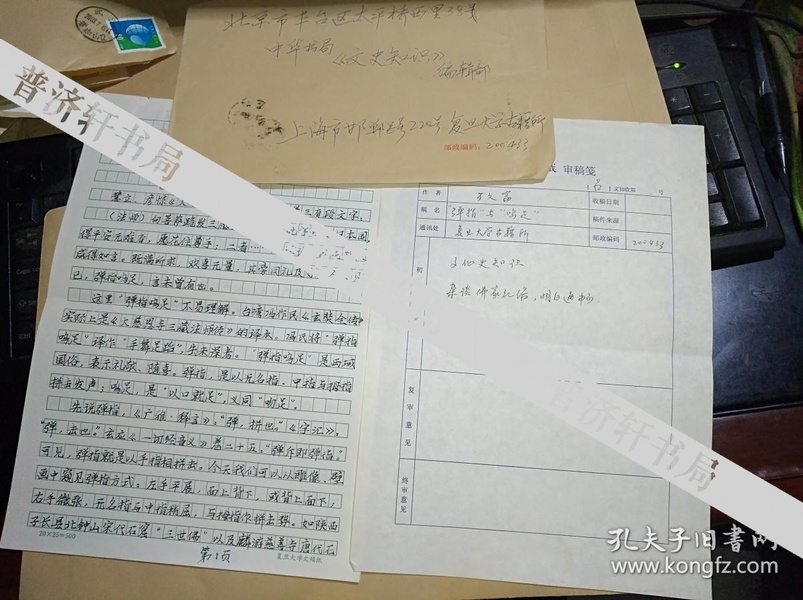 北京市丰台区太平桥西里38号
中华书局
《文史知识》
编辑部
上海市邯郸路220号 复旦大学古籍所
邮政编码：200433
三项段文字。
得平安无难否，愿花住尊手；二者
咸得如言。既满所求，欢喜无量，其旁同礼及
已，弹指鸣足，言未曾有也。
这里“弹指鸣足”不易理解。台湾冯作民《玄奘全传》
实际上是《大慈恩寺三藏法师传》的译本。冯氏将“弹指
鸣足”译作“手舞足蹈”失未深考。“弹指鸣足”是西域
国俗，表示礼敬、随喜。弹指，是以无名指、中指与拇指
捺击发声；鸣足，是“以口就足”，义同“呜足”。
先说弹指，《广雅·释言》：“弹，拼也。”《字汇》：
“弹，击也。”玄应《一切经音义》卷二十五：“弹斥即弹指。”
可见，弹指就是以手指相拼击。今天我们可以从雕像、壁
画中窥见弹指方式：左手平展，面上背下，或背上面下；
右手微张，无名指与中指稍屈，与拇指作拼击势。如陕西
子长县北钟山宋代石窟“三世佛”以及麟游慈善寺唐代石
20×25=500
第1页
复旦大学文稿纸
审稿笺
文知收签
号
作者
收稿日期
稿名
“弹指”与“鸣足”
稿件来源
通讯处
复旦大学古籍所
邮政编码
200433
初
文化史知识
杂谈佛家化语，明白通畅。
复审意见
终审意见
普济轩书局
普济轩书局
孔夫子旧书网
www.kongfz.com